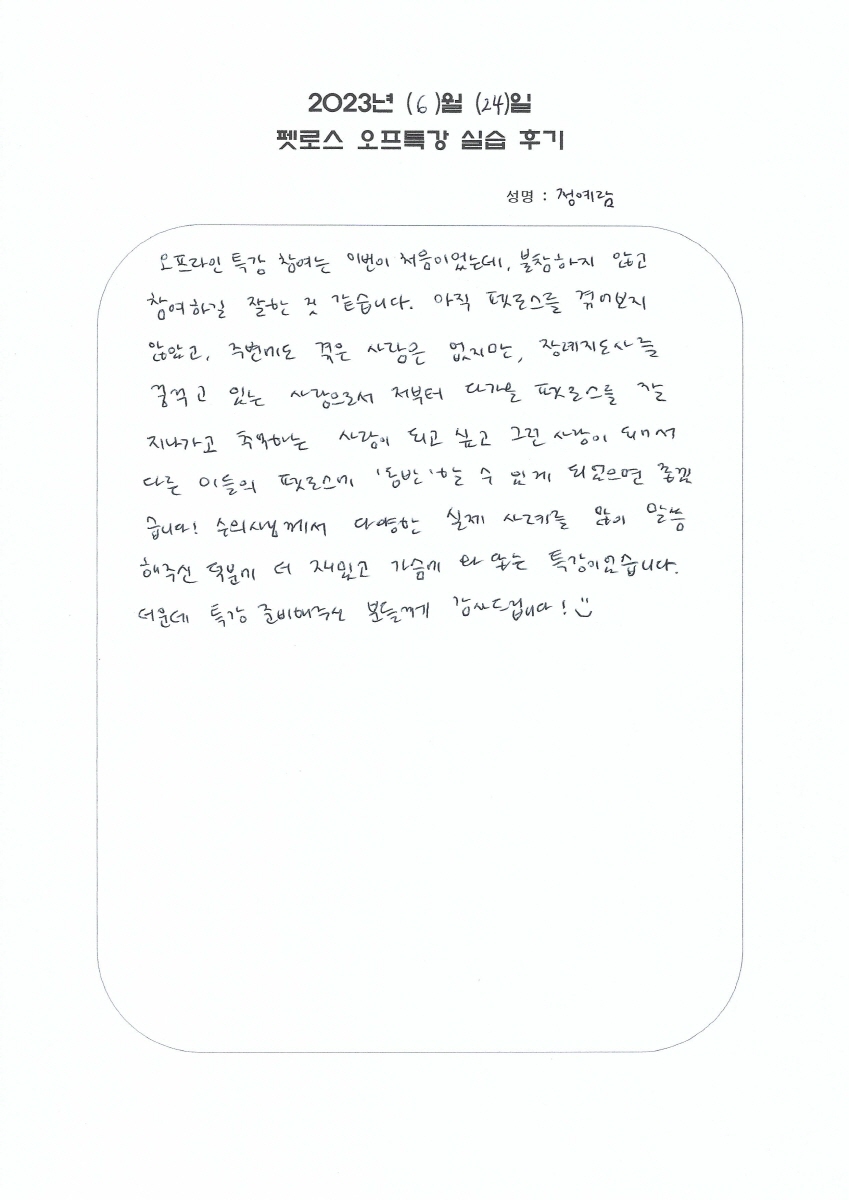 2023년 (6)월 (24)일
펫로스 오프특강 실습 후기
성명 : 정예람
오프라인 특강 참여는 이번이 처음이었는데, 불참하지 않고
참여하길 잘한 것 같습니다. 아직 펫로스를 겪어보지
않았고, 주변에도 겪은 사람은 없지만, 장례지도사를
꿈꾸고 있는 사람으로서 저부터 다가올 펫로스를 잘
지나가고 극복하는 사람이 되고 싶고 그런 사람이 되어서
다른 이들의 펫로스에 '동반'할 수 있게 되었으면 좋겠
습니다! 수의사님께서 다양한 실제 사례를 많이 말씀
해주신 덕분에 더 재밌고 가슴에 와 닿는 특강이었습니다.
더운데 특강 준비해주신 분들께 감사드립니다!